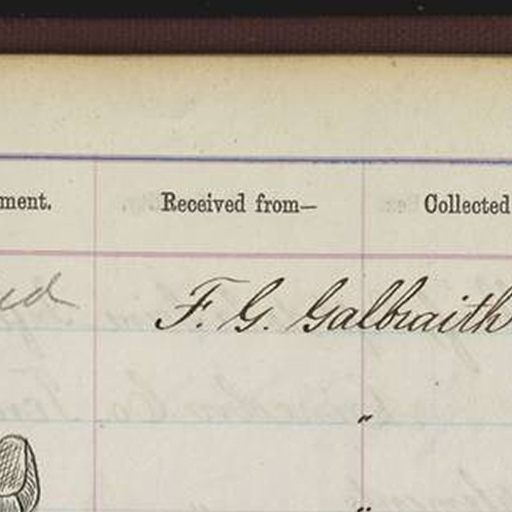 ment. Received from— Collected
F. G. Galbraith
"
"